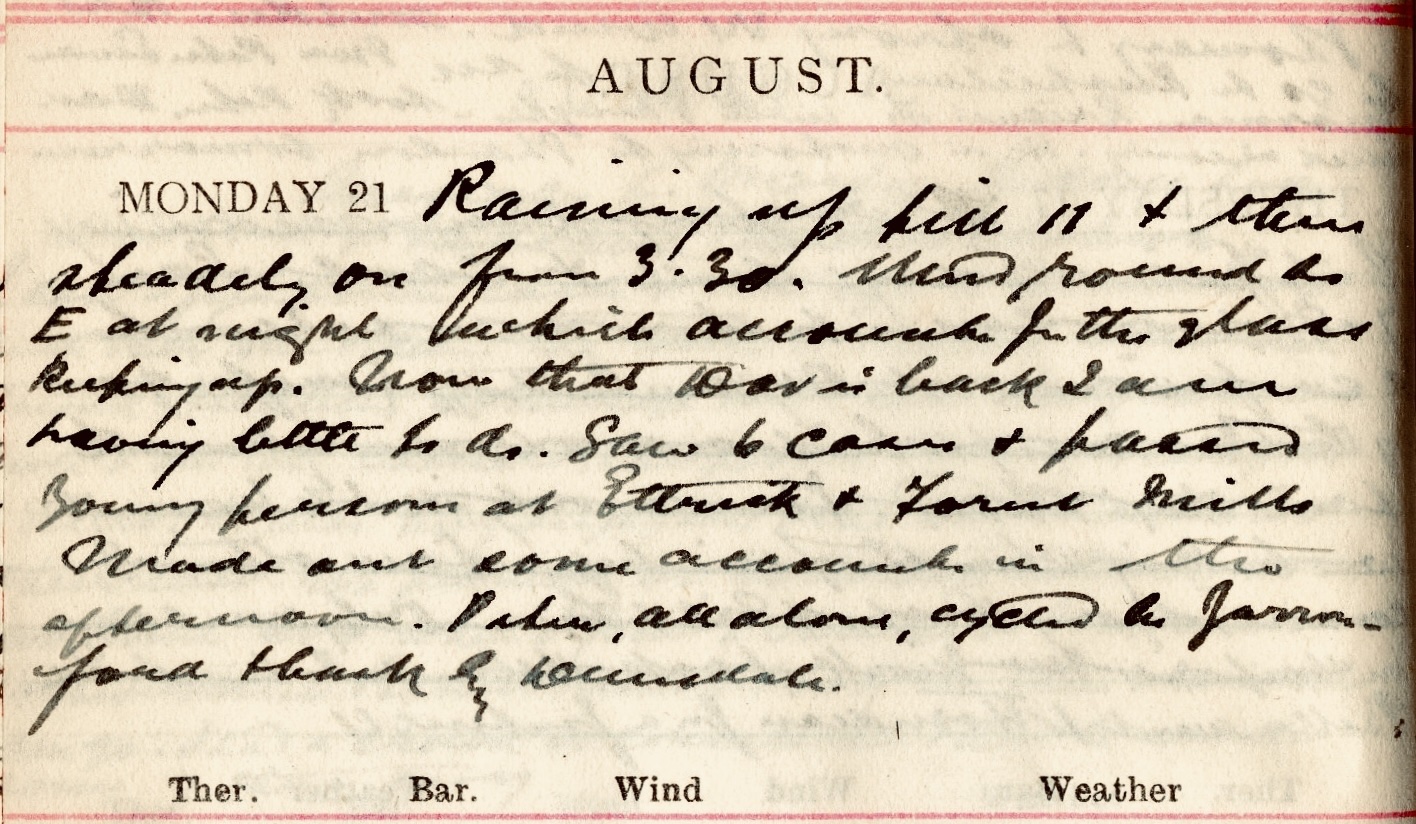 AUGUST.
MONDAY 21 Raining up till 11 & then
steadily on from 3.30. Wind round to
E at night which accounts for the glass
keeping up. Now that Davis back I am
having little to do. Saw 6 cases & passed
young persons at Ettrick & Forest Mills
Made out some accounts in the
afternoon. Peter, all alone, cycled to Yarrow-
ford & back by
Ther. Bar. Wind Weather